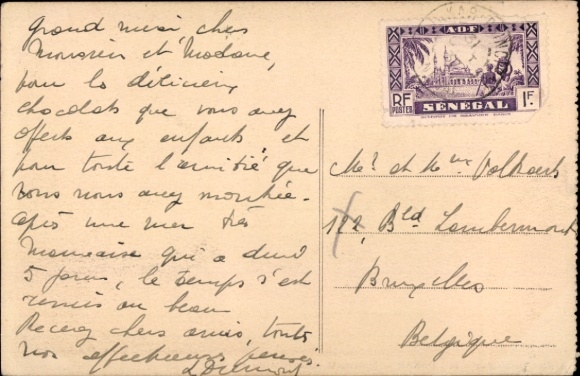 Grand merci chers
Monsieur et Madame,
pour les délicieux
chocolats que vous avez
offerts aux enfants et
pour toute l'amitié que
vous nous avez montrée.
après une mer très
mauvaise qui a duré
5 jours, le temps s'est
remis au beau
Recevez chers amis, toutes
nos affectueuses pensées.
LDumont
A.O.F
RF
POSTES
SÉNÉGAL
1F.
Mr et Mme
122, Bld Lambermont
Bruxelles
Belgique